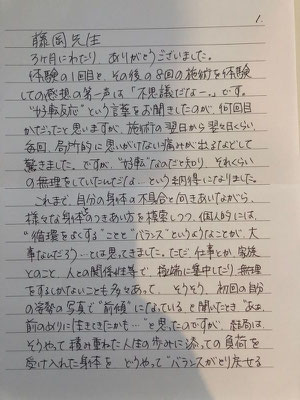 1.
藤岡先生
3ヶ月にわたり、ありがとうございました。
体験の1回目と、その後の8回の施術を体験
しての感想の第一声は「不思議だなー。」です。
"好転反応"という言葉をお聞きしたのが、何回目
かだったと思いますが、施術の翌日から翌々日くらい、
毎回、局所的に思いがけない痛みが出るなどして
驚きました。ですが、"好転"なのだと知り、それくらい
の無理をしていたんだな…という納得になりました。
これまで、自分の身体の不具合と向きあいながら、
様々な身体のつきあい方を模索しつつ、個人的には、
"循環をよくする"ことと"バランス"というようなことが、大
事なんだろう…とは思ってきました。ただ仕事とか、家族
とのこと、人との関係性等で、極端に集中したり、無理
をするしかないことも多々あって、そうそう、初回の自分
の姿勢の写真で"前傾"になっていると聞いたとき"あぁ、
前のめりに生きてきたかも…"と思ったのですが、結局は、
そうやって積み重ねた人生の歩みに添っての負荷を
受け入れた身体を どうやって"バランスがとり戻せる